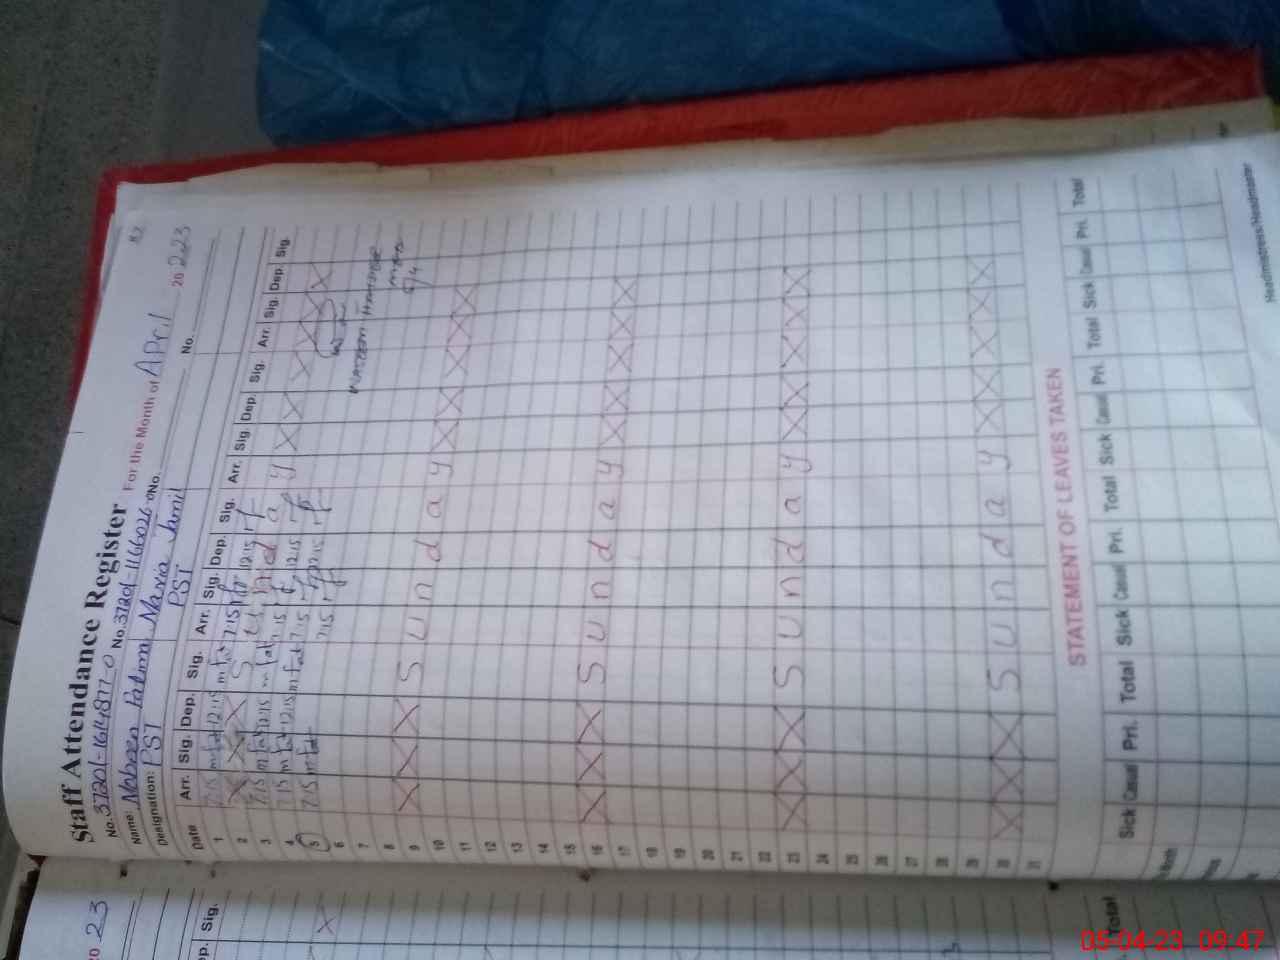 Staff Attendance Register For the Month of April 2023
82
No. 37201-1614877-0 No. 37201-1166026-0 No. No.
Name: Maria Jamil
Designation: PST PST
Date Arr. Sig. Dep. Sig. Arr. Sig. Dep. Sig. Arr. Sig. Dep. Sig. Arr. Sig. Dep. Sig.
1 7:15 12:15 7:15 12:15
2 Sunday
3 7:15 12:15 7:15 12:15
4 7:15 12:15 7:15 12:15
5 7:15 7:15 12:15
6
7
8
9 Sunday
10
11
12
13
14
15
16 Sunday
17
18
19
20
21
22
23 Sunday
24
25
26
27
28
29
30 Sunday
31
STATEMENT OF LEAVES TAKEN
Sick Casual Pri. Total Sick Casual Pri. Total Sick Casual Pri. Total Sick Casual Pri. Total
Headmistress/Headmaster
20 23
Sig.
Total
05-04-23 09:47